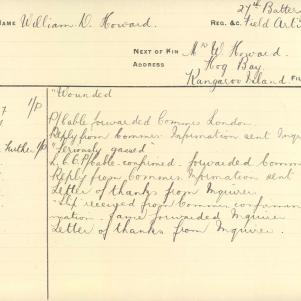 27th Batter
NAME William D. Howard. REG. &C. Field Arti
NEXT OF KIN Mrs W. Howard.
ADDRESS Hog Bay,
Kangaroo Island
"Wounded
P/Cable forwarded Commrs London
7 Reply from Commrs Information sent Inqu
Further "Seriously gassed"
P/Cable confirmed. forwarded Comm
Reply from Commrs Information sent
Letter of thanks from Inquirer.
received from Commrs confirmin
mation. Same forwarded Inquirer
Letter of thanks from Inquirer.